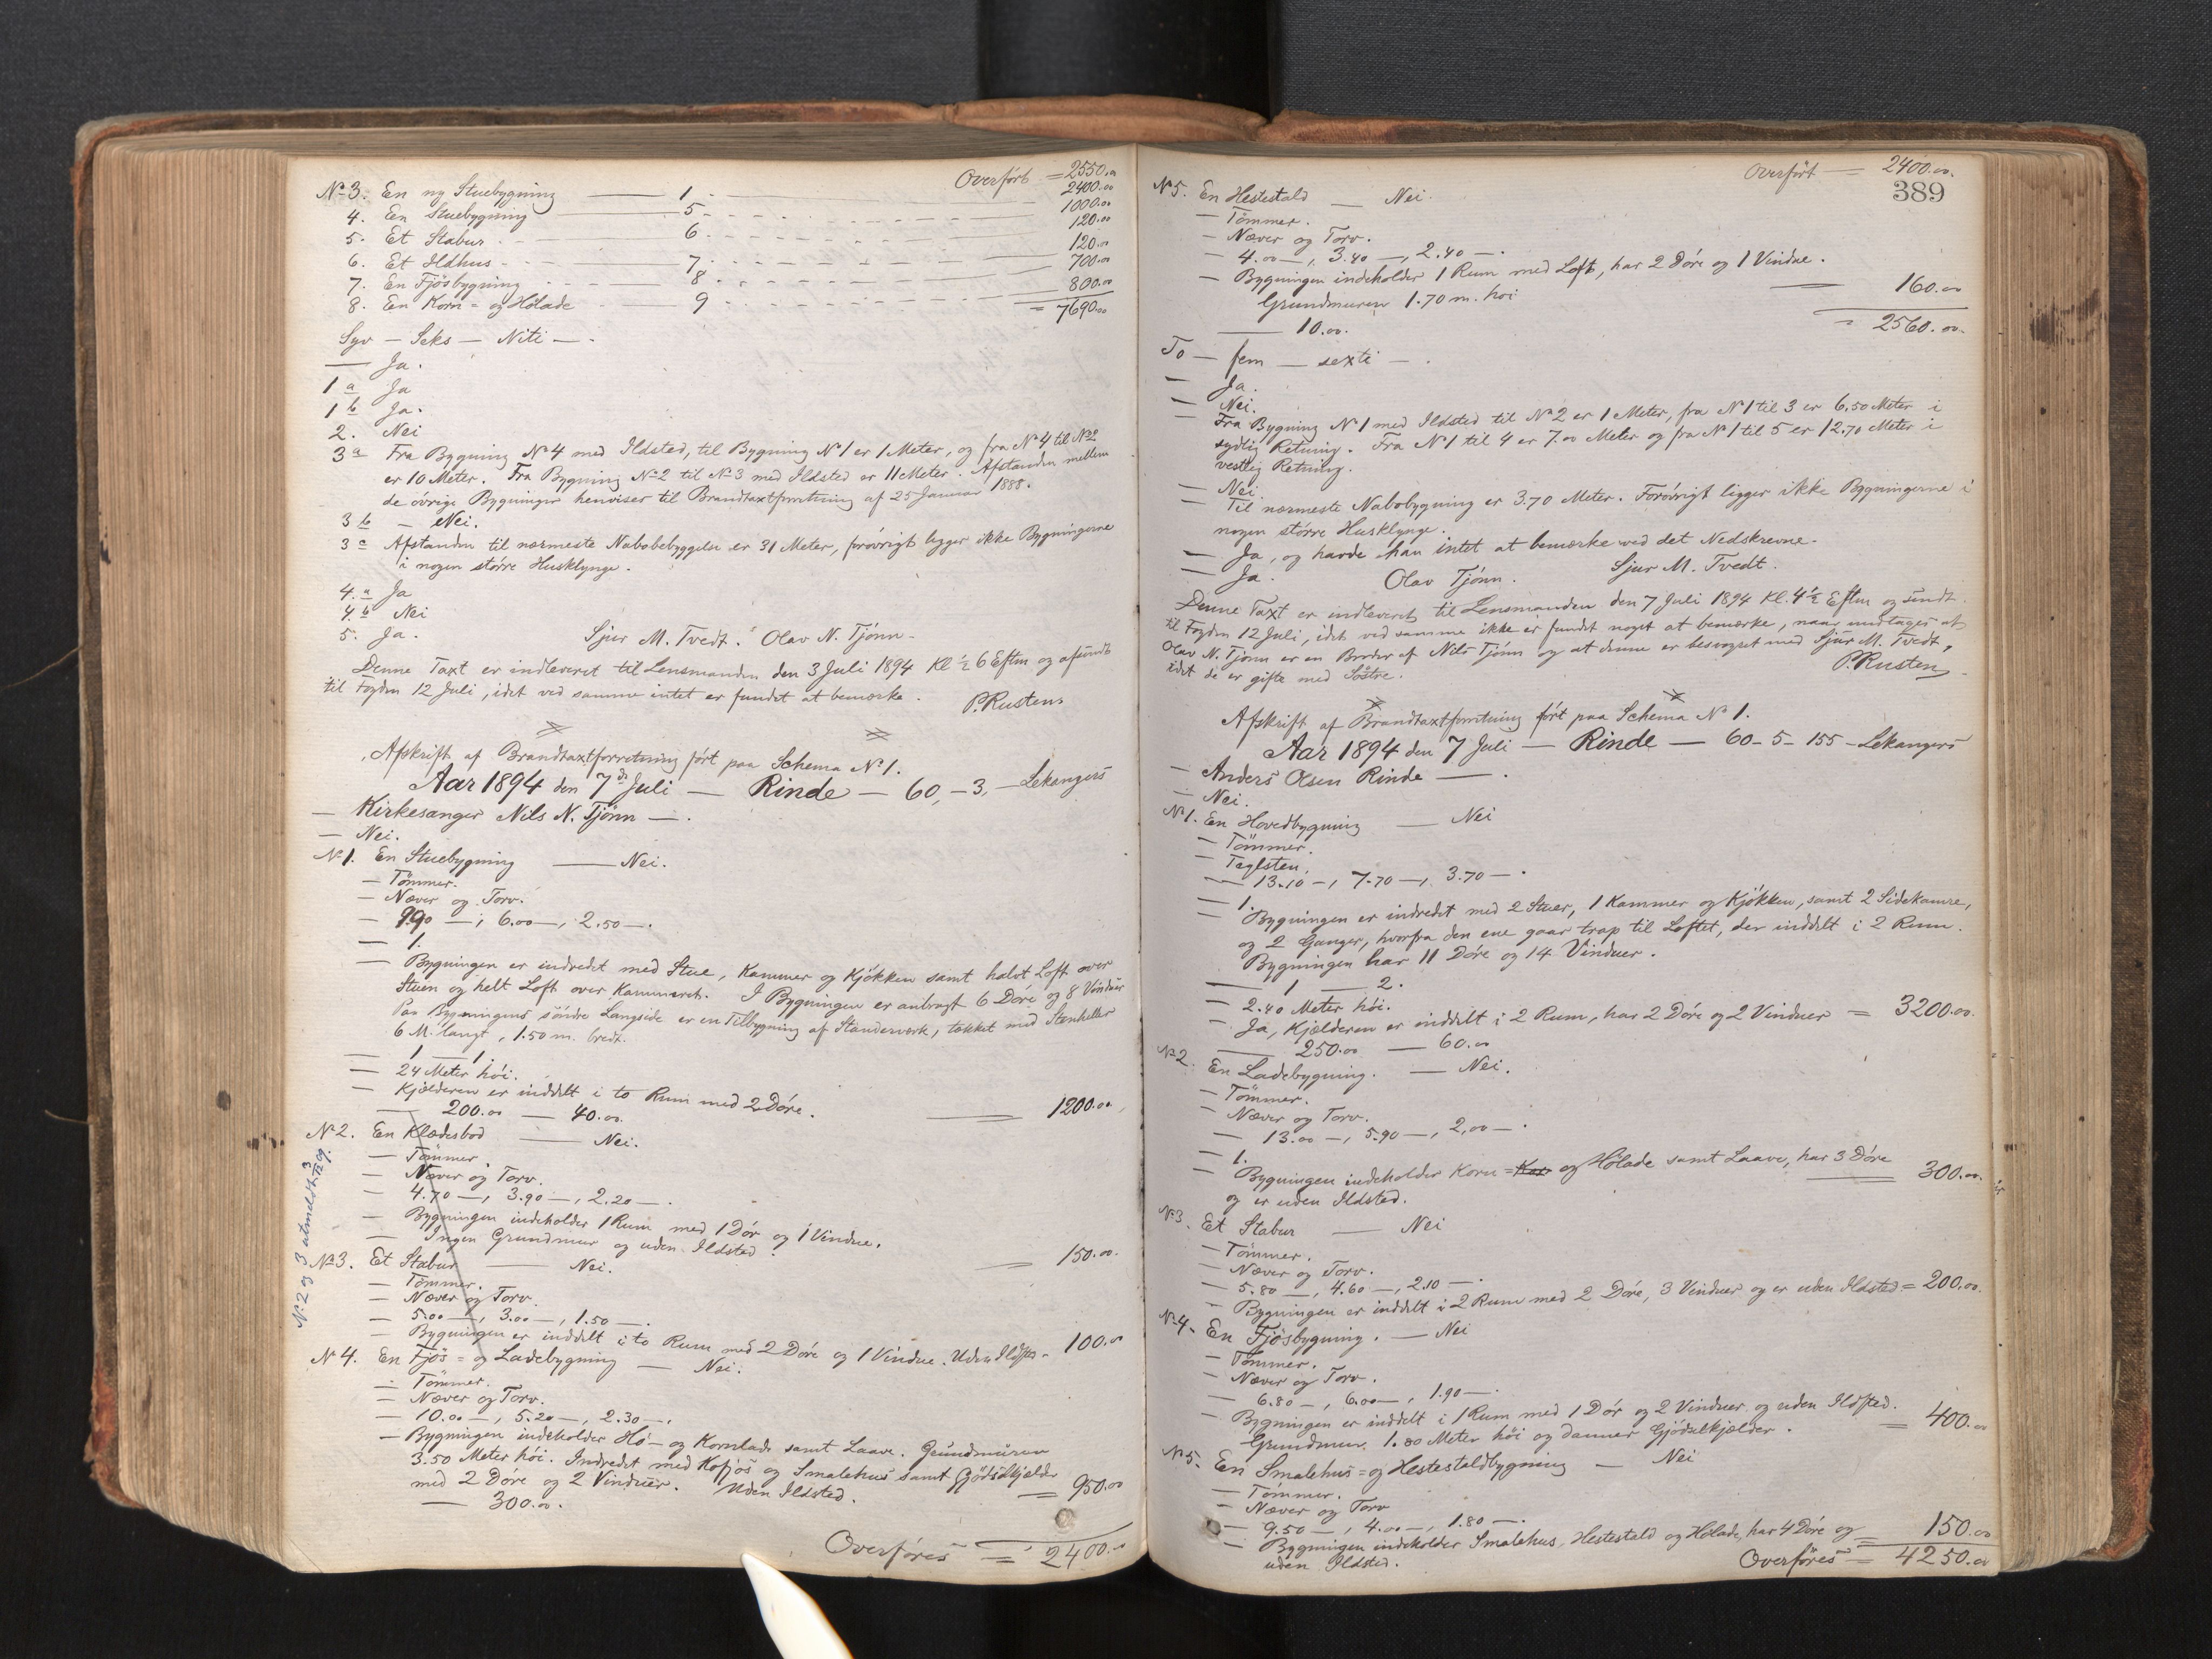 Overført = 2550.00
No 3. En ny Stuebygning — 1 - — 2400.00
4. En Stuebygning — 5 - — 1000.00
5. Et Stabur — 6 - — 120.00
6. Et Ildhus — 7 - — 120.00
7. En Fjösbygning — 8 - — 700.00
8. En Korn= og Hölade — 9 - — 800.00
= 7690.00
Syv — Seks — Niti — .
— Ja.
1 a Ja
1 b Ja.
2. Nei
3 a Fra Bygning No 4 med Ildsted, til Bygning No 1 er 1 Meter, og fra No 4 til No 2
er 10 Meter. Fra Bygning No 2 til No 3 med Ildsted er 11 Meter. Afstanden mellem
de övrige Bygninger henvises til Brandtaxtforretning af 25 Januar 1888.
3 b — Nei.
3 c Afstanden til nærmeste Nabobebyggelse er 31 Meter, forövrigt ligger ikke Bygningerne
i nogen större Husklynge.
4. a Ja
4. b Nei
5. Ja. Sjur M. Tvedt. Olav N. Tjönn -
Denne Taxt er indleveret til Lensmanden den 3 Juli 1894 Kl ½ 6 Eftm og afsendt
til Fogden 12 Juli, idet ved samme intet er fundet at bemærke. P. Rusten
Afskrift af Brandtaxtforretning fört paa Schema No 1.
Aar 1894 den 7de Juli — Rinde — 60, - 3, — Lekangers
— Kirkesanger Nils N. Tjönn — .
— Nei.
No 1. En Stuebygning — Nei.
— Tömmer.
— Næver og Torv.
— 9.90 —, 6.00 —, 2.50 — .
— 1.
— Bygningen er indredet med Stue, Kammer og Kjökken samt halvt Loft over
Stuen og helt Loft over Kammeret. I Bygningen er anbragt 6 Döre og 8 Vinduer
Paa Bygningens söndre Langside er en Tilbygning af Standerværk, tækket med Stenheller
6 M. langt, 1.50 m. bredt.
— 1 — 1.
— 24 Meter höi.
— Kjælderen er inddelt i to Rum med 2 Döre.
— 200.00 — 40.00 — 1200.00
No 2. En Klædesbod — Nei.
— Tömmer
— Næver og Torv.
— 4.70 —, 3.90 —, 2.20 — .
— Bygningen indeholder 1 Rum med 1 Dör og 1 Vindue.
— Ingen Grundmur og uden Ildsted. = 150.00
No 3. Et Stabur — Nei.
— Tömmer.
— Næver og Torv
— 5.00 —, 3.00 —, 1.50 — .
— Bygningen er inddelt i to Rum med 2 Döre og 1 Vindue. Uden Ildsted = 100.00
No 2 og 3 utmeldt
No 4. En Fjös= og Ladebygning — Nei.
— Tömmer.
— Næver og Torv.
— 10.00 —, 5.20 —, 2.30 — .
— Bygningen indeholder Hö- og Kornlade samt Laave. Grundmuren
3.50 Meter höi. Indredet med Kofjös og Smalehus samt Gjödselkjelder
med 2 Döre og 2 Vinduer. Uden Ildsted. = 950.00
— 300.00.
Overföres = 2400.00
389
Overfört = 2400.00.
No 5. En Hestestald — Nei.
— Tömmer.
— Næver og Torv.
— 4.00 —, 3.40 —, 2.40 — .
— Bygningen indeholder 1 Rum med Loft, har 2 Döre og 1 Vindue.
Grundmuren 1.70 m. höi — 160.00
— 10.00. = 2560.00.
To — fem — sexti — .
— Ja.
— Nei.
— Fra Bygning No 1 med Ildsted til No 2 er 1 Meter, fra No 1 til 3 er 6.50 Meter i
sydlig Retning. Fra No 1 til 4 er 7.00 Meter og fra No 1 til 5 er 12.70 Meter i
vestlig Retning.
— Nei.
— Til nærmeste Nabobygning er 3.70 Meter. Forövrigt ligger ikke Bygningerne i
nogen större Husklynge.
— Ja, og havde han intet at bemærke ved det Nedskrevne.
— Ja. Olav Tjönn. Sjur M. Tvedt.
Denne Taxt er indleveret til Lensmanden den 7 Juli 1894 Kl. 4½ Eftm og sendt
til Fogden 12 Juli, idet ved samme ikke er fundet noget at bemærke, naar undtages at
Olav N. Tjönn er en Broder af Nils Tjönn og at denne er besvogret med Sjur M. Tvedt,
idet de er gifte med Söstre. P. Rusten
Afskrift af Brandtaxtforretning fört paa Schema No 1.
Aar 1894 den 7 Juli — Rinde — 60 - 5 - 155 - Lekangers
— Anders Olsen Rinde — .
— Nei.
No 1. En Hovedbygning — Nei
— Tömmer.
— Taglsten.
— 13.10 —, 7.70 —, 3.70 — .
— 1.
— Bygningen er indredet med 2 Stuer, 1 Kammer og Kjökken, samt 2 Sidekamre,
og 2 Ganger, hvorfra den ene gaar trap til Loftet, der inddelt i 2 Rum.
Bygningen har 11 Döre og 14 Vinduer.
— 1 — 2.
— 2.40 Meter höi.
— Ja, Kjælderen er inddelt i 2 Rum, har 2 Döre og 2 Vinduer = 3200.00.
— 250.00 — 60.00
No 2. En Ladebygning. — Nei.
— Tömmer.
— Næver og Torv.
— 13.00 —, 5.90 —, 2,00 — .
— 1.
— Bygningen indeholder Korn= og Hölade samt Laave, har 3 Döre
og er uden Ildsted. = 300.00.
No 3. Et Stabur — Nei
— Tömmer.
— Næver og Torv.
— 5.80 —, 4.60 —, 2.10 — .
— Bygningen er inddelt i 2 Rum med 2 Döre, 3 Vinduer og er uden Ildsted = 200.00.
No 4. En Fjösbygning. — Nei
— Tömmer.
— Næver og Torv.
— 6.80 —, 6.00 —, 1.90 — .
— Bygningen er inddelt i 1 Rum med 1 Dör og 2 Vinduer og uden Ildsted.
Grundmur 1.80 Meter höi og danner Gjödselkjælder. = 400.00
No 5. En Smalehus= og Hestestaldbygning — Nei
— Tömmer.
— Næver og Torv
— 9.50 —, 4.00 —, 1.80 — .
— Bygningen indeholder Smalehus, Hestestald og Hölade, har 4 Döre og
uden Ildsted. = 150.00
Overföres = 4250.00